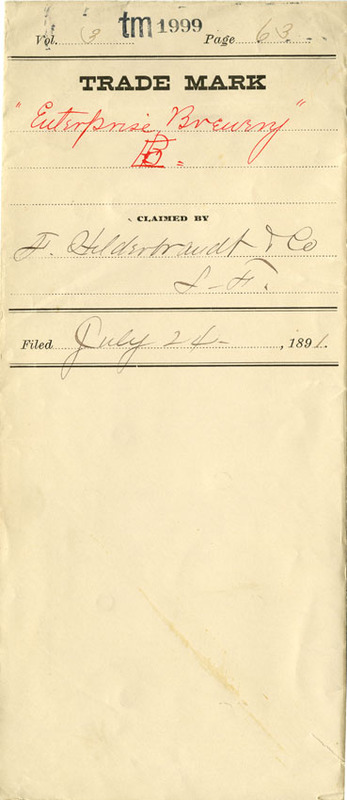 Vol. 3 tm 1999 Page 63
TRADE MARK
"Enterprise Brewery"
EB.
CLAIMED BY
F. Hilderbrandt & Co
S-F.
Filed July 24- , 1891.